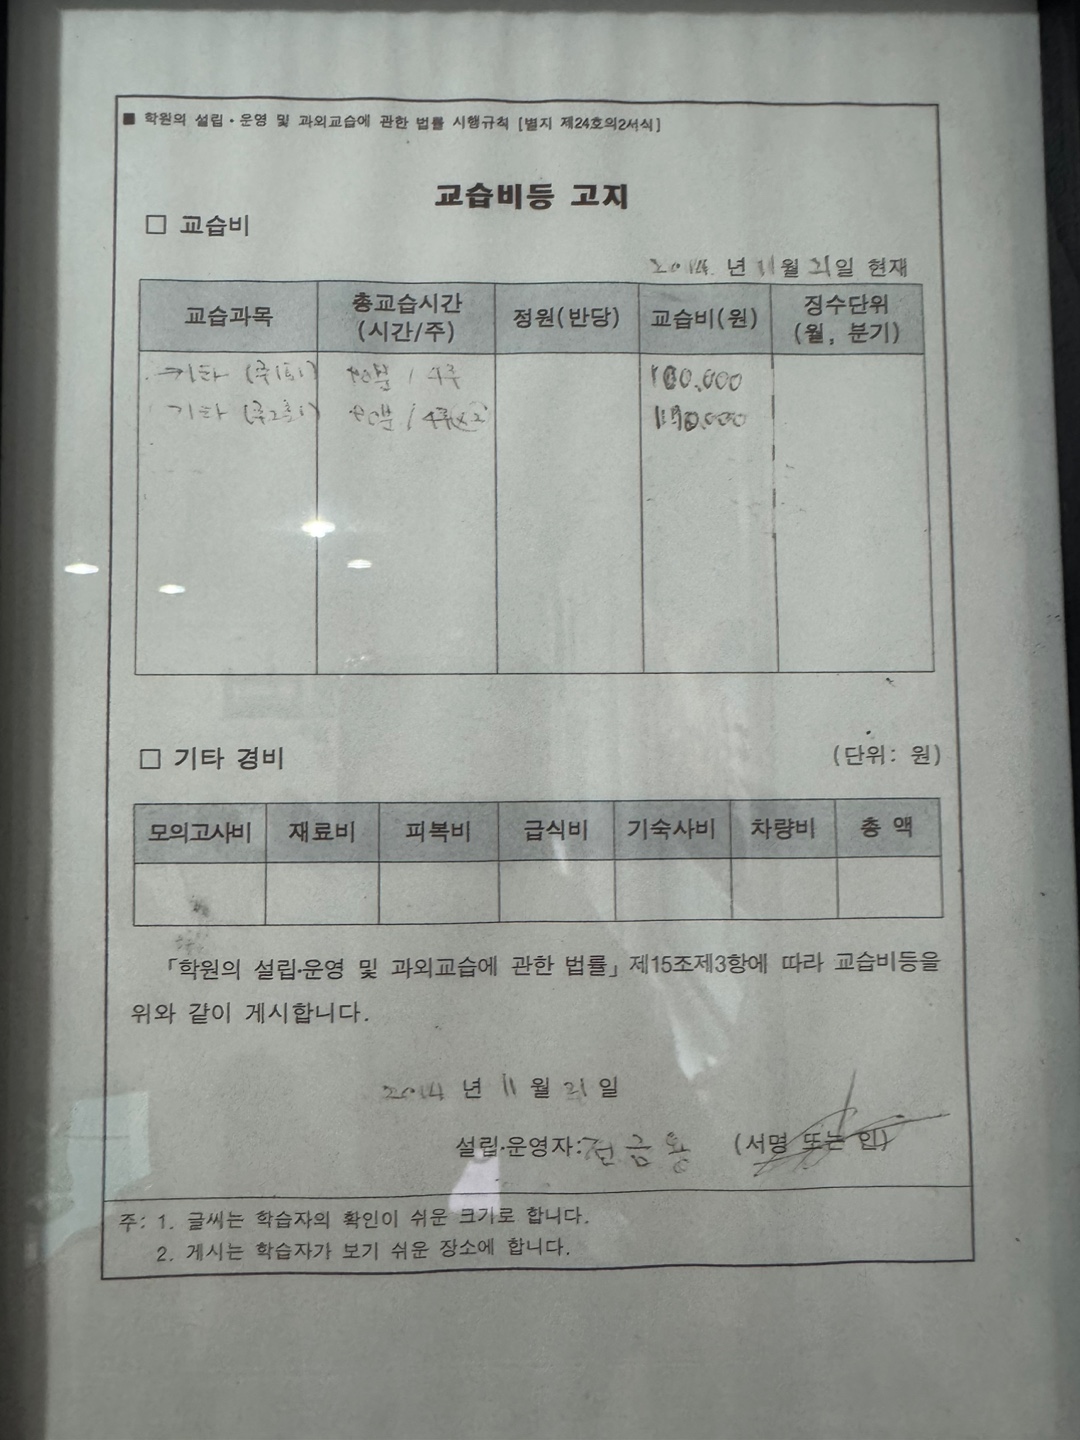 ■ 학원의 설립·운영 및 과외교습에 관한 법률 시행규칙 [별지 제24호의2서식]
교습비등 고지
□ 교습비
2014 년 11 월 21 일 현재
교습과목 총교습시간 (시간/주) 정원(반당) 교습비(원) 징수단위 (월, 분기)
기타 (주1회) 분 / 4주
기타 (주2회) 분 / 4주(x2)
□ 기타 경비 (단위: 원)
모의고사비 재료비 피복비 급식비 기숙사비 차량비 총 액
「학원의 설립·운영 및 과외교습에 관한 법률」 제15조제3항에 따라 교습비등을
위와 같이 게시합니다.
2014 년 11 월 21 일
설립·운영자: 전금용 (서명 또는 인)
주: 1. 글씨는 학습자의 확인이 쉬운 크기로 합니다.
2. 게시는 학습자가 보기 쉬운 장소에 합니다.